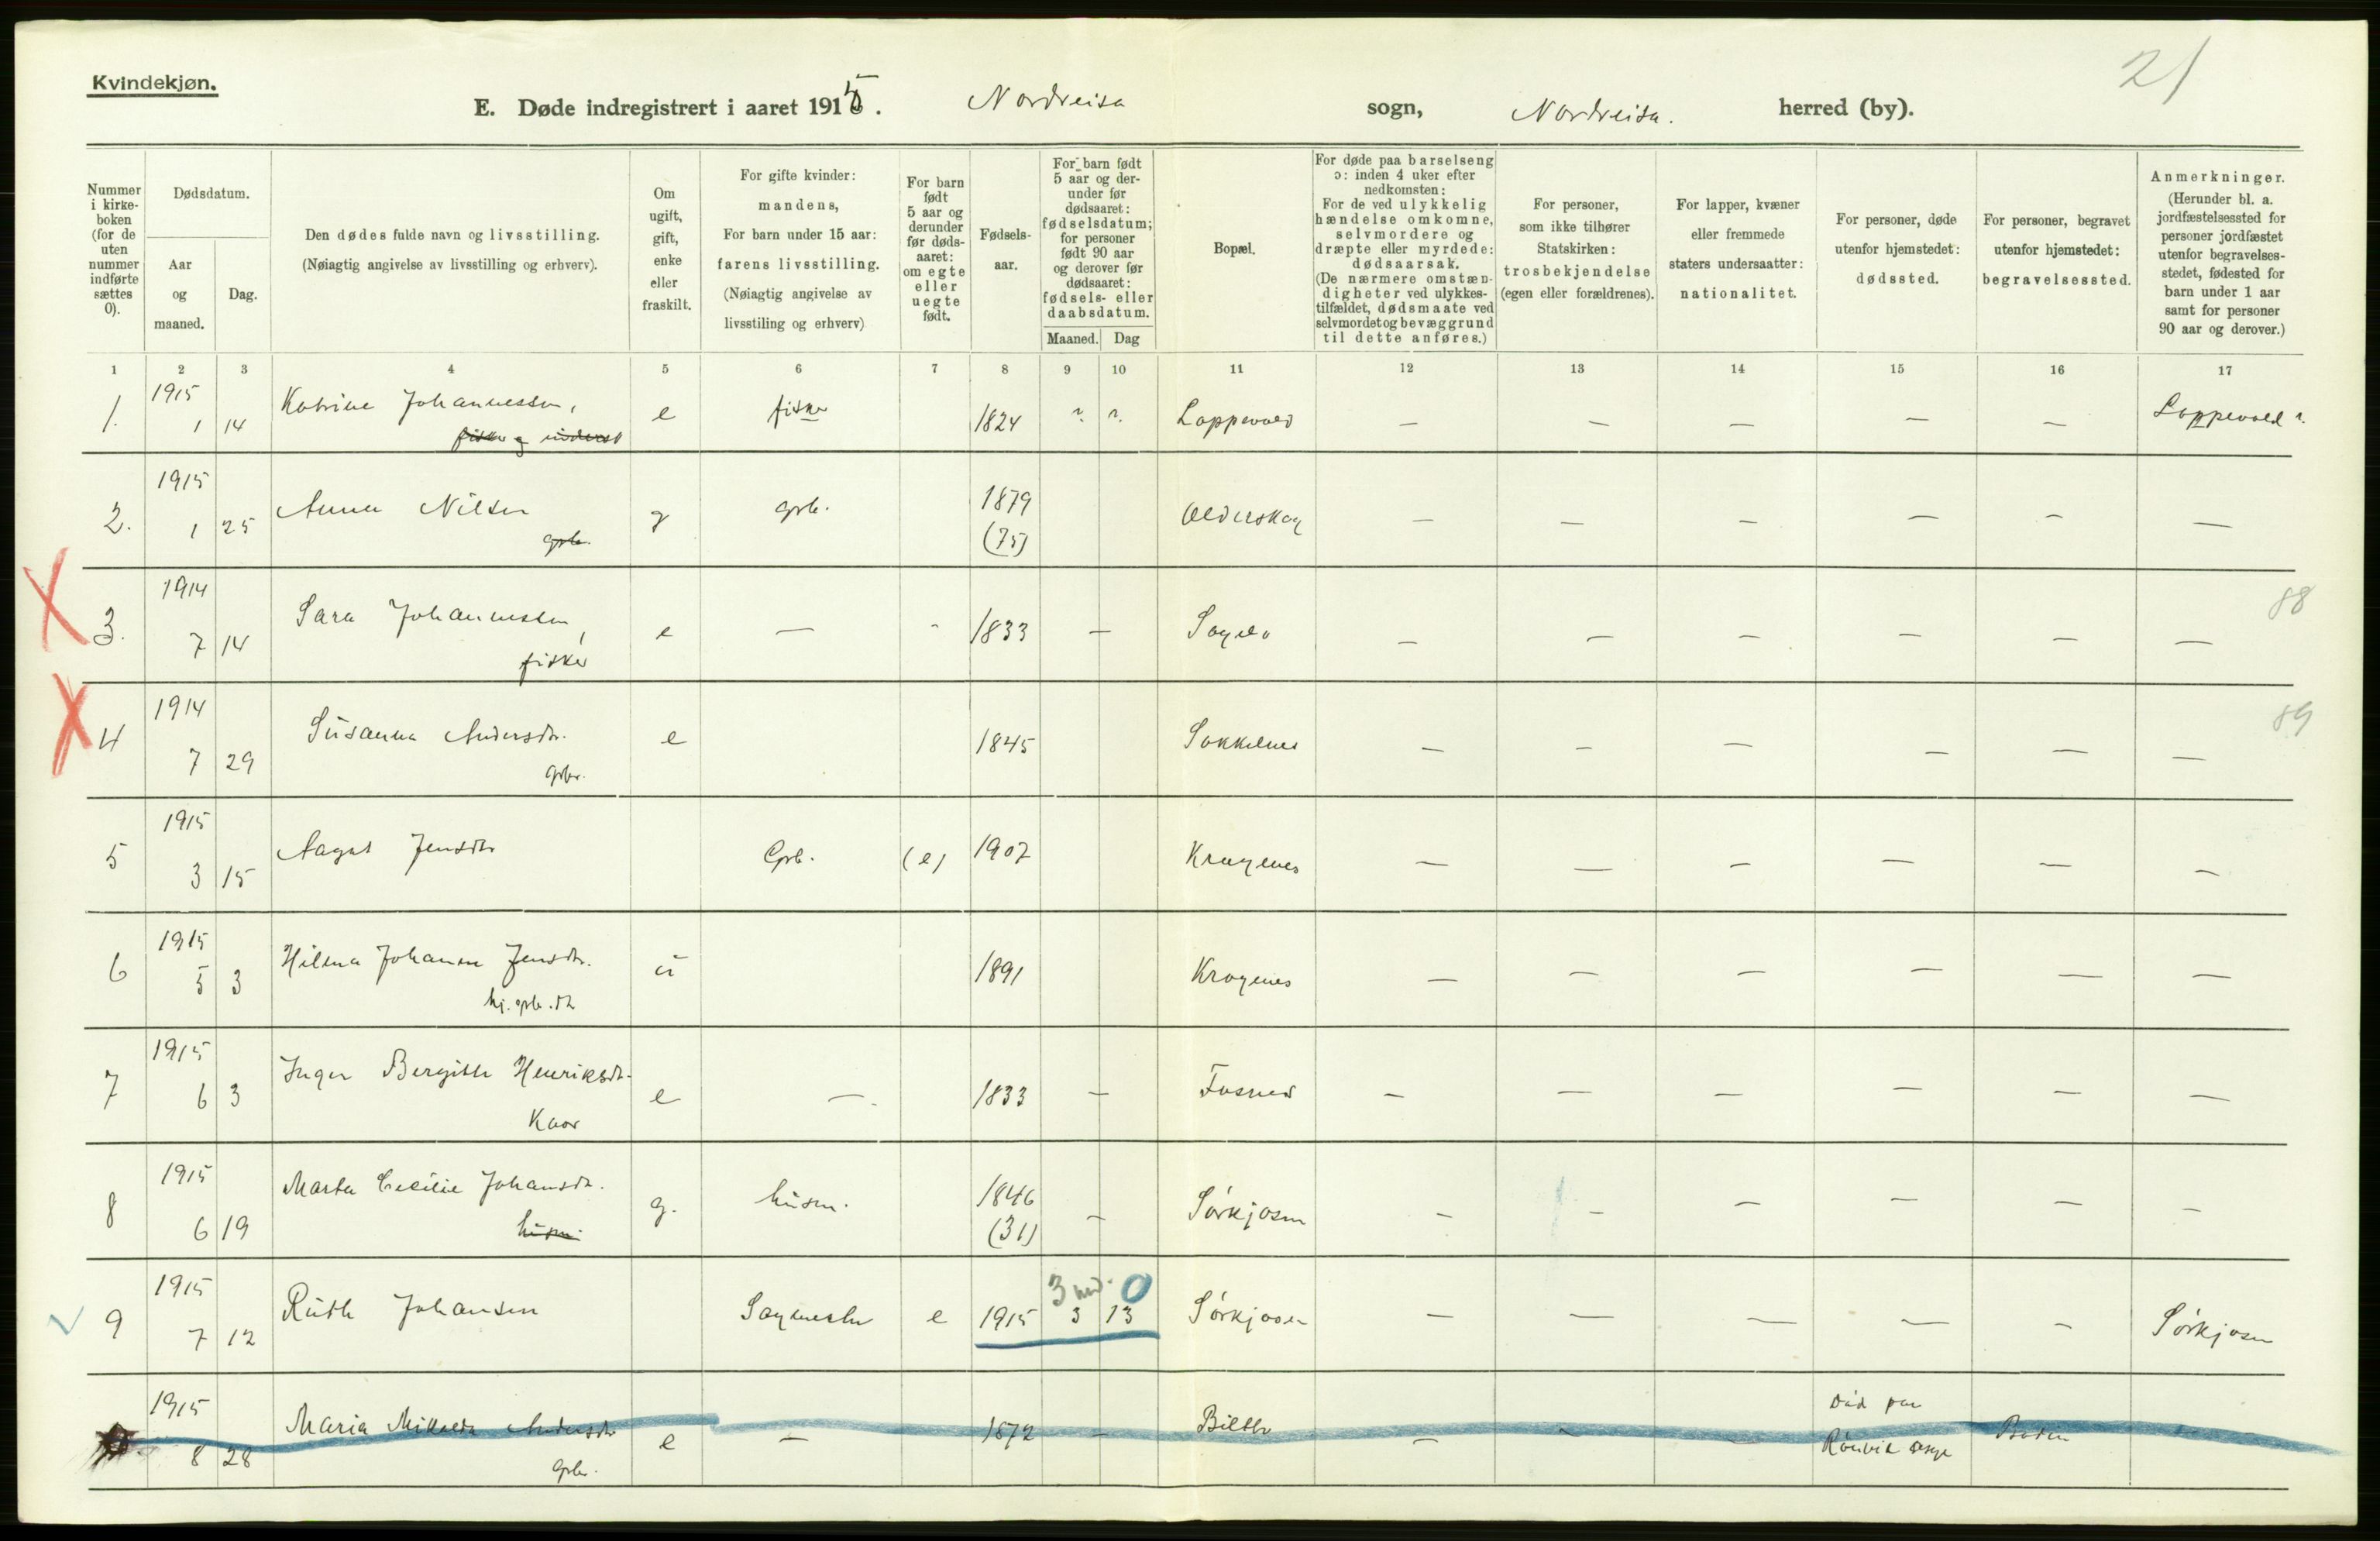 Kvindekjøn.
21
E. Døde indregistrert i aaret 1915. Nordreisa sogn, Nordreisa. herred (by).
Nummer i kirkeboken (for de uten nummer indførte sættes 0).
Dødsdatum.
Aar og maaned.
Dag.
Den dødes fulde navn og livsstilling.
(Nøiagtig angivelse av livsstilling og erhverv).
Om ugift, gift, enke eller fraskilt.
For gifte kvinder: mandens,
For barn under 15 aar: farens livsstilling.
(Nøiagtig angivelse av livsstiling og erhverv)
For barn født 5 aar og derunder før dødsaaret: om egte eller uegte født.
Fødselsaar.
For barn født 5 aar og derunder før dødsaaret: fødselsdatum; for personer født 90 aar og derover før dødsaaret: fødsels- eller daabsdatum.
Maaned. Dag
Bopæl.
For døde paa barselseng ɔ: inden 4 uker efter nedkomsten:
For de ved ulykkelig hændelse omkomne, selvmordere og dræpte eller myrdede: dødsaarsak.
(De nærmere omstændigheter ved ulykkestilfældet, dødsmaate ved selvmordet og bevæggrund til dette anføres.)
For personer, som ikke tilhører Statskirken: trosbekjendelse (egen eller forældrenes).
For lapper, kvæner eller fremmede staters undersaatter: nationalitet.
For personer, døde utenfor hjemstedet: dødssted.
For personer, begravet utenfor hjemstedet: begravelsessted.
Anmerkninger.
(Herunder bl. a. jordfæstelsessted for personer jordfæstet utenfor begravelsesstedet, fødested for barn under 1 aar samt for personer 90 aar og derover.)
1 2 3 4 5 6 7 8 9 10 11 12 13 14 15 16 17
1. 1915 1 14 Katrine Johannessen, fisker og inderst e fisker 1824 ? ? Lappevold — — — — — Lappevold ?
2. 1915 1 25 Anna Nilsen grb. g grb. 1879 (75) Olderskog — — — — — —
3. 1914 7 14 Sara Johannesen, fisker e — - 1833 — — — — — — — 88
4 1914 7 29 Susanna Andersdtr. grbr. e 1845 Sokkelnes — — — — — — 89
5 1915 3 15 Aagot Jensdtr Grb. (e) 1907 Kragenes — — — — — —
6 1915 5 3 Hilma Johanne Jensdtr. hj. grb. dtr u 1891 Kragenes — — — — — —
7 1915 6 3 Inger Bergitte Henriksdtr. Kaar e —. 1833 — — — — — — —
8 1915 6 19 Marta Cecilie Johansdtr. husm. g. husm. 1846 (31) — Sørkjosen — — — — — —
9 1915 7 12 Ruth Johansen e 1915 3 md. 0 3 13 Sørkjosen — — — — — Sørkjosen
1915 8 28 Maria Andersdtr. grbr. e — 1872 — — — — Död paa Rönvik asyl Bodin